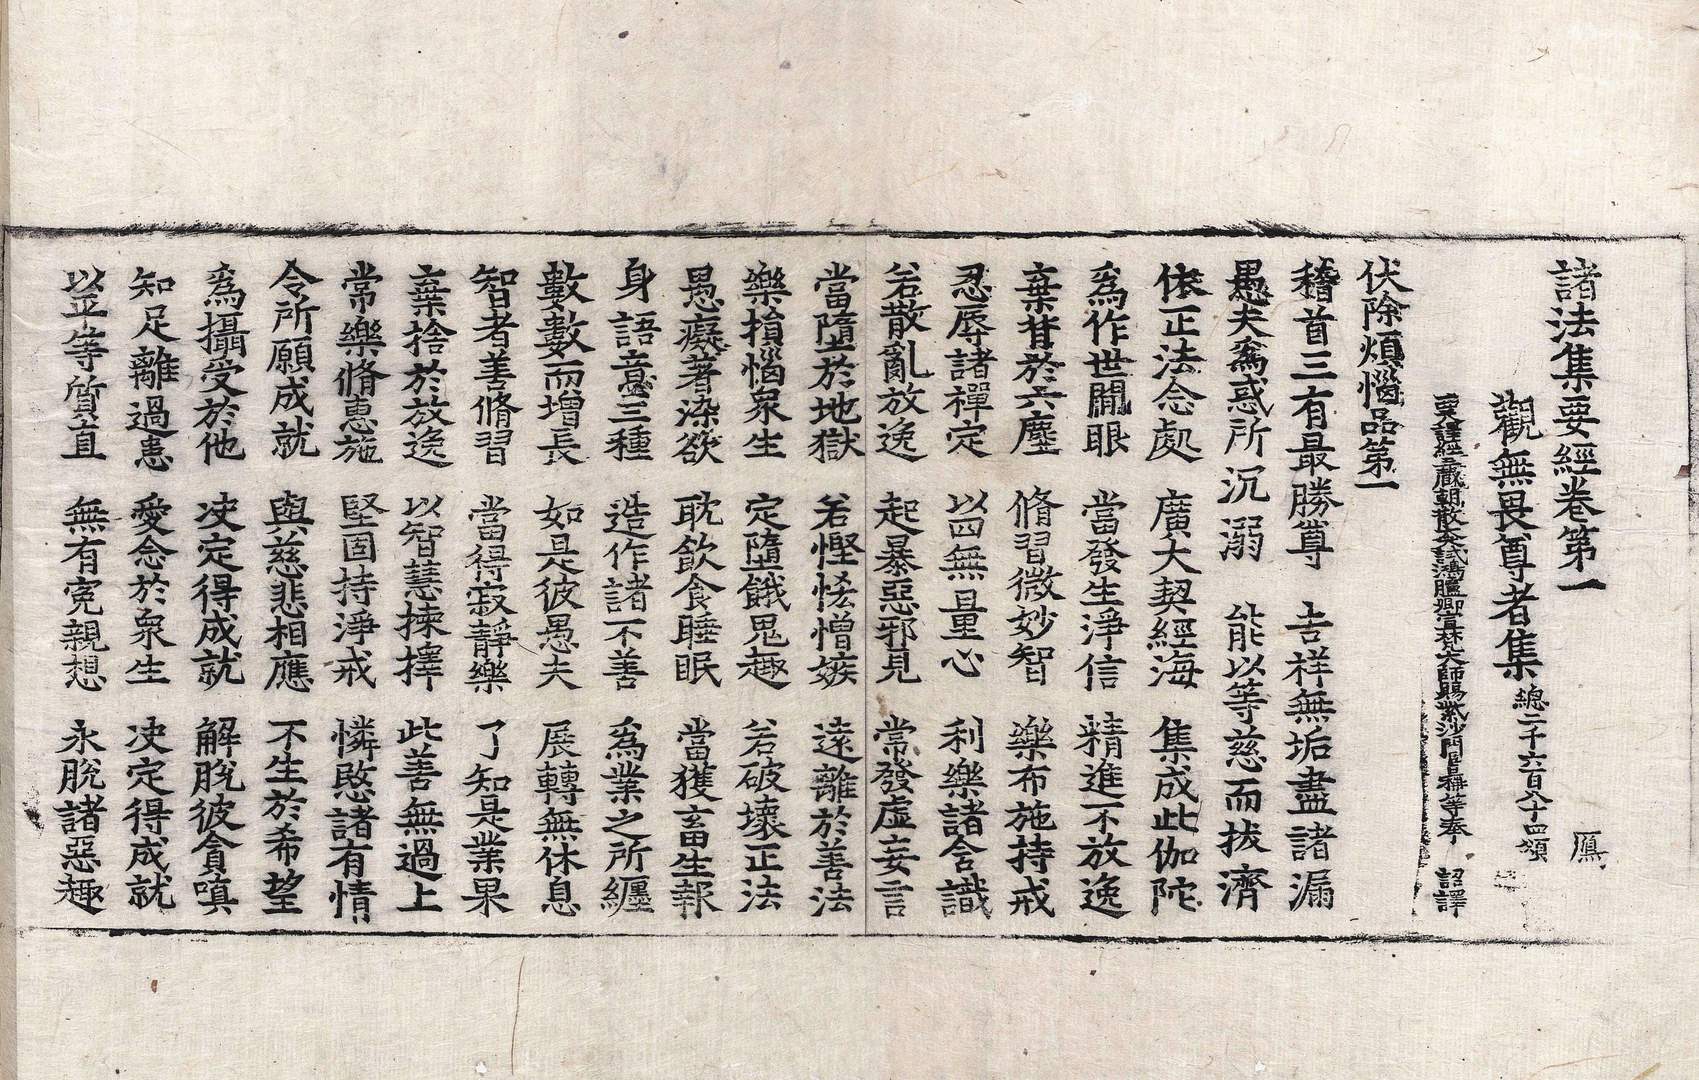 諸法集要經卷第一　鴈
觀無畏尊者集 緫二千六百八十四頌
譯經三藏朝散大夫試鴻臚卿宣梵大師賜紫沙門臣日稱等奉　詔譯
伏除煩惱品第一
稽首三有最勝尊　吉祥無垢盡諸漏
愚夫爲惑所沉溺　能以等慈而拔濟
依正法念處　廣大契經海　集成此伽陀
爲作世間眼　當發生淨信　精進不放逸
棄背於六塵　脩習微妙智　樂布施持戒
忍辱諸禪定　以四無量心　利樂諸含識
若散亂放逸　起暴惡邪見　常發虛妄言
當墮於地獄　若慳悋憎嫉　遠離於善法
樂損惱衆生　定墮餓鬼趣　若破壞正法
愚癡著染欲　耽飲食睡眠　當獲畜生報
身語意三種　造作諸不善　爲業之所纏
數數而增長　如是彼愚夫　展轉無休息
智者善脩習　當得寂靜樂　了知是業果
棄捨於放逸　以智慧揀擇　此善無過上
常樂脩惠施　堅固持淨戒　憐愍諸有情
令所願成就　與慈悲相應　不生於希望
爲攝受於他　决定得成就　解脫彼貪嗔
知足離過恚　愛念於衆生　决定得成就
以正等質直　無有寃親想　永脫諸惡趣